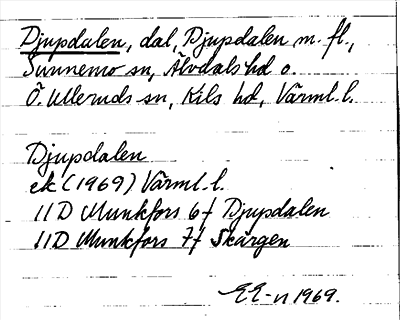 Djupdalen, dal, Djupdalen m. fl.,
Sunnemo sn, Älvdals hd o.
Ö. Ulleruds sn, Kils hd, Värml. l.
Djupdalen
ek (1969) Värml. l.
11D Munkfors 6f Djupdalen
11D Munkfors 7f Skärgen
EE-n 1969.